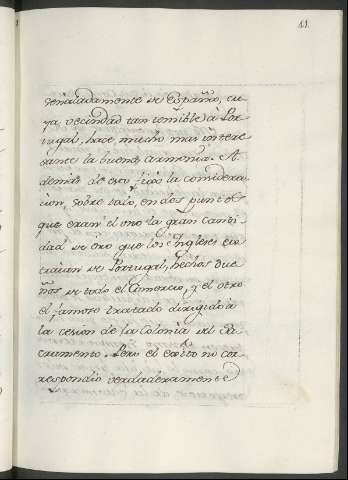 41
señaladamente de España, cu-
ya vecindad tan temible à Por-
tugal, hace mucho mas intere-
sante la buena armonia. A-
demas de esto fixò la considera-
cion, sobre todo, en dos puntos
que eran el uno la gran canti-
dad de oro que los Ingleses ex-
traìan de Portugal, hechos due-
ños de todo el Comercio, y el otro
el famoso tratado dirigido à
la cesion de la Colonia del Sa-
cramento. Pero el exîto no co-
respondiò verdaderamente